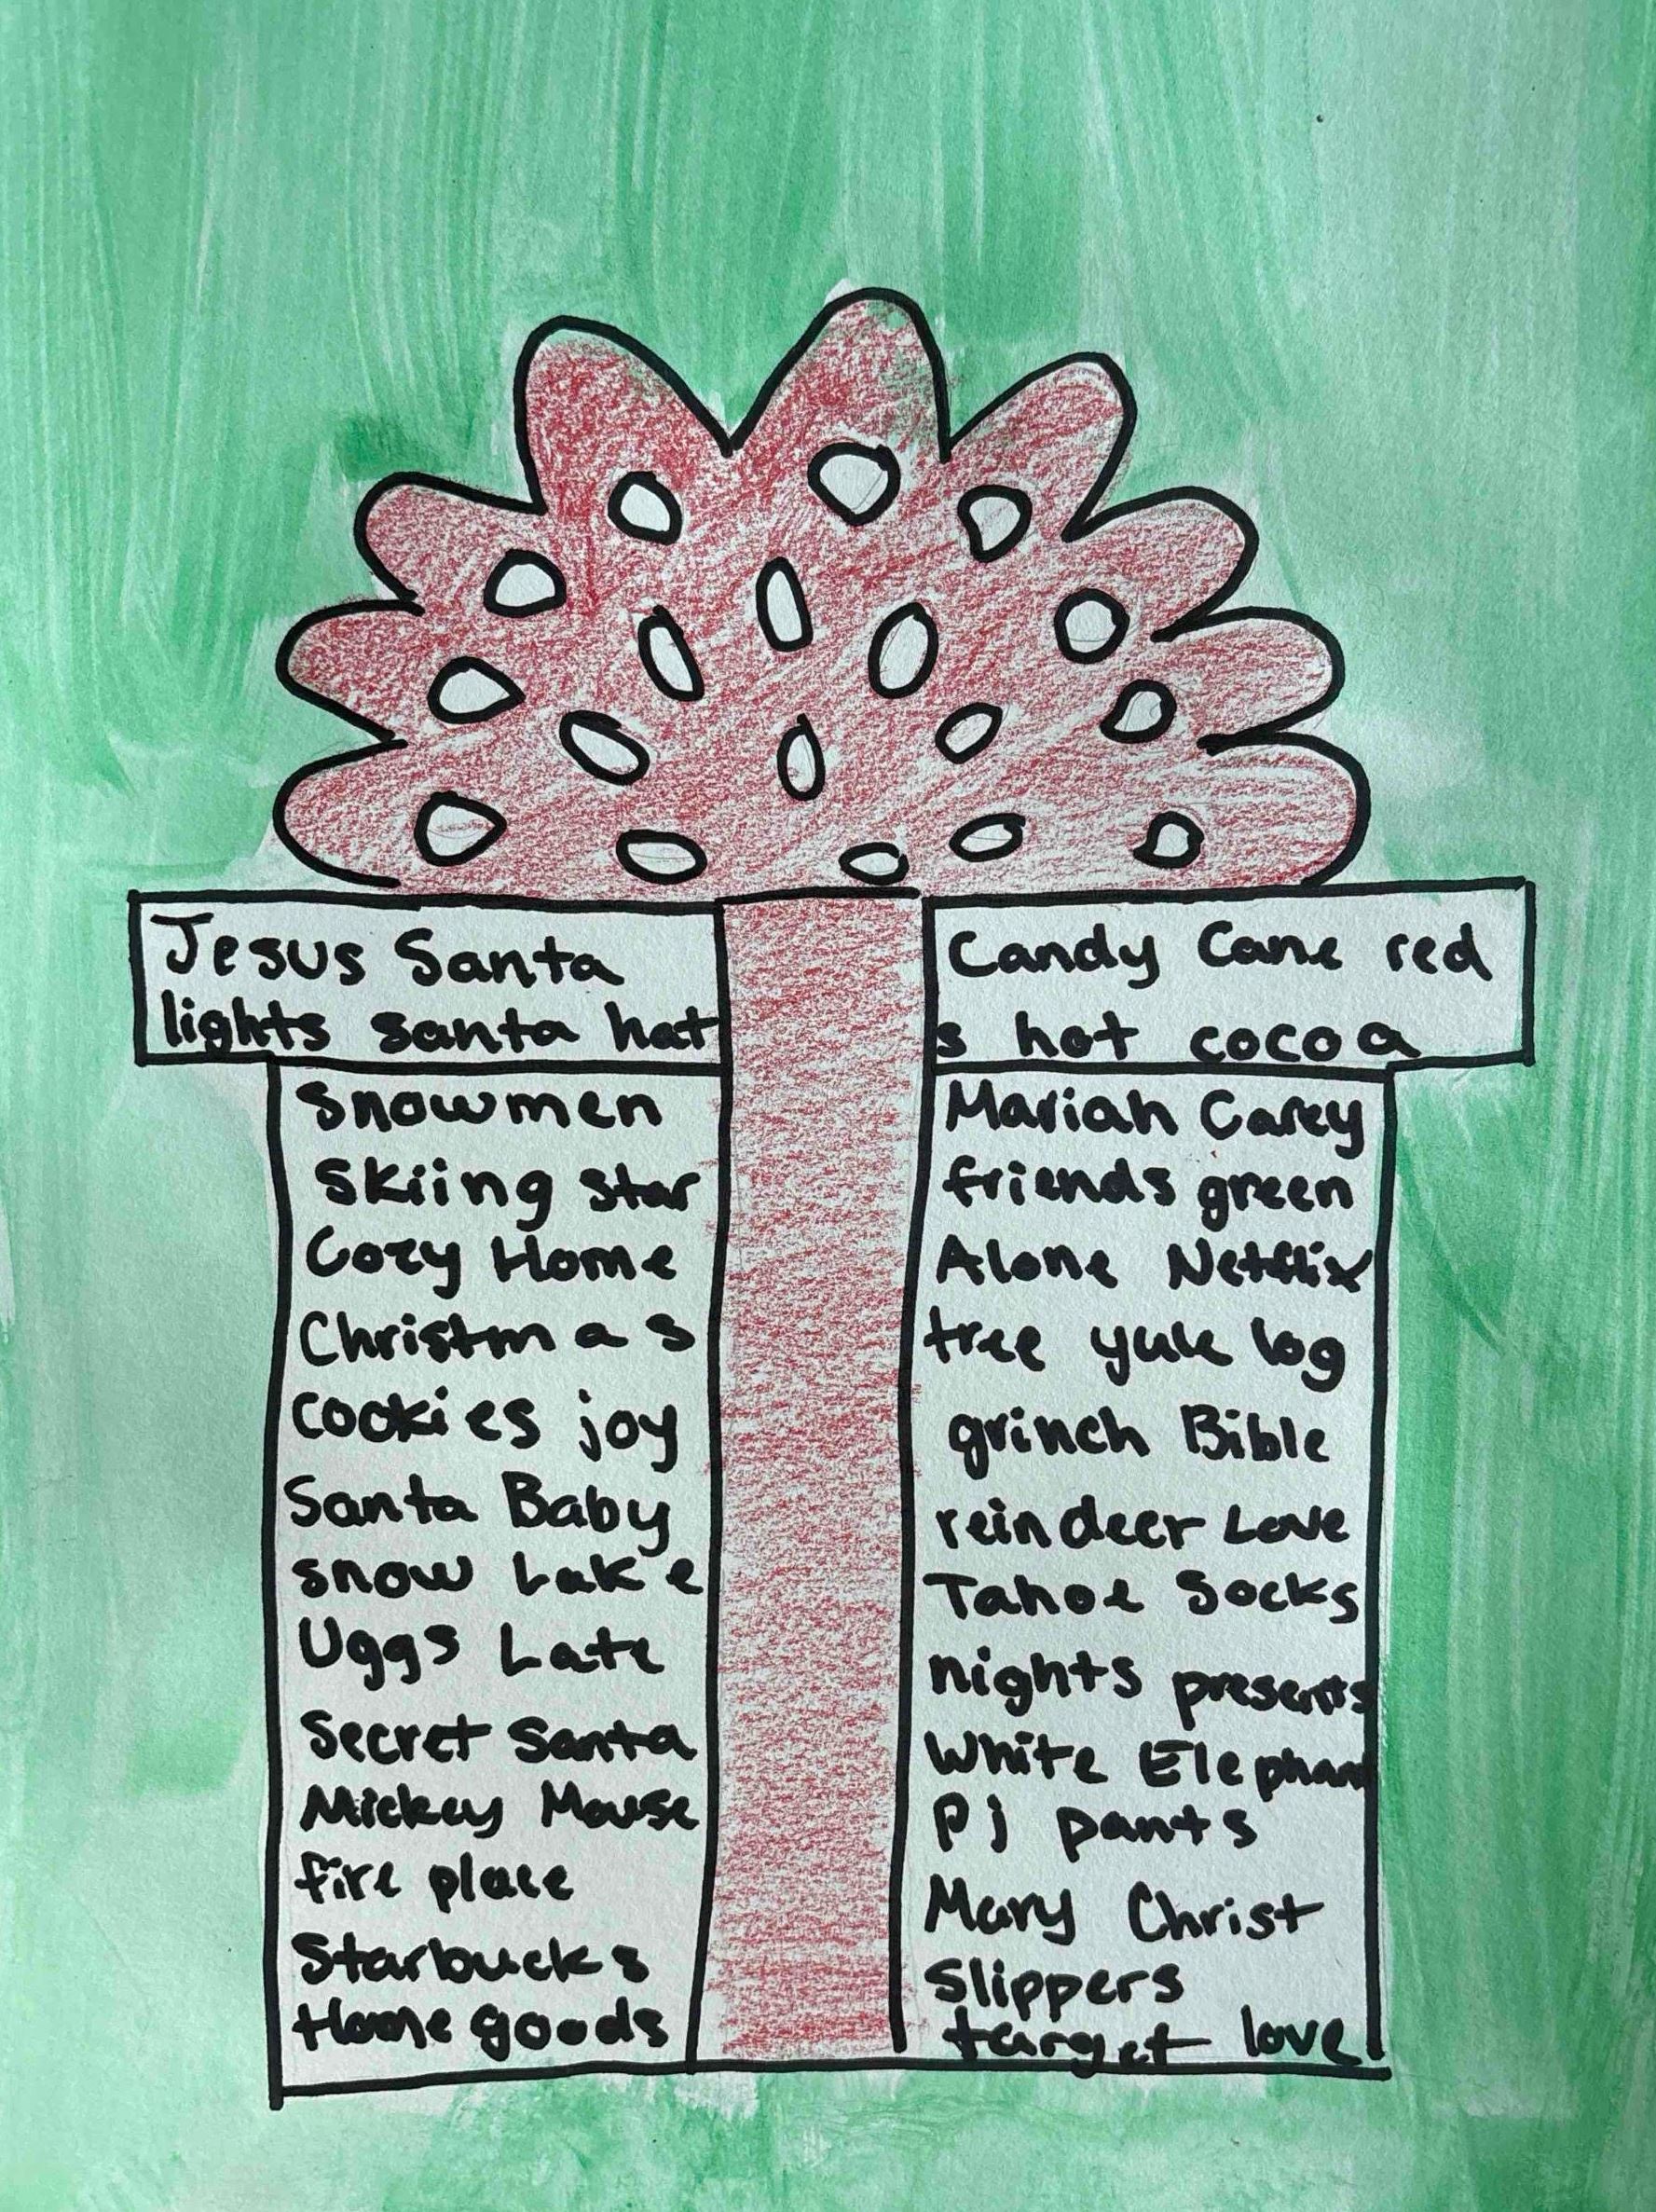 Jesus Santa
lights santa hat
Snowmen
Skiing star
Cozy Home
Christmas
cookies joy
Santa Baby
snow Lake
Uggs Late
Secret Santa
Mickey Mouse
fire place
Starbucks
Home goods
Candy Cane red
s hot cocoa
Mariah Carey
friends green
Alone Netflix
tree yule log
grinch Bible
reindeer Love
Tahoe Socks
nights presents
White Elephant
Pj pants
Mary Christ
Slippers
target love